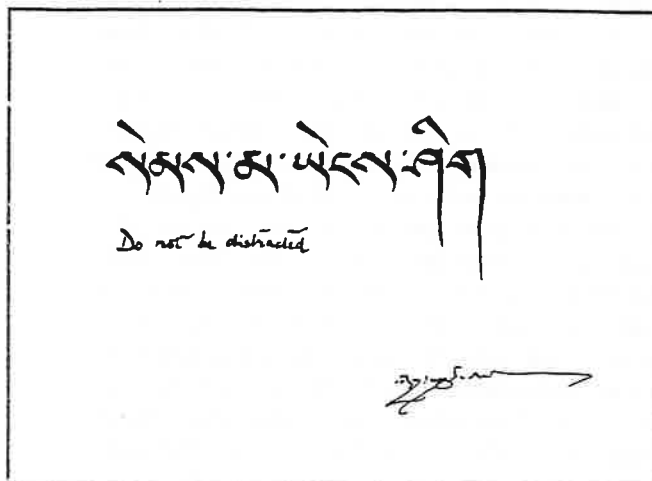 སེམས་མ་ཡེངས་ཤིག
Do not be distracted